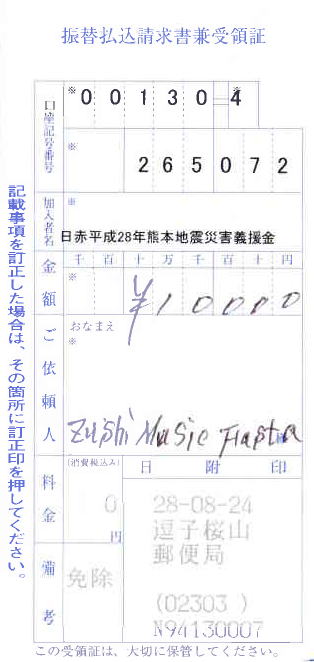 振替払込請求書兼受領証
口座記号番号
※
00130=4
※
265072
加入者名
※
日赤平成28年熊本地震災害義援金
金額
千百十万千百十円
※
¥10000
ご依頼人
おなまえ
※
Zushi Music Fiesta
様
料金
(消費税込み)
0
円
備考
免除
日附印
28-08-24
逗子桜山
郵便局
(02303 )
N94130007
記載事項を訂正した場合は、その箇所に訂正印を押してください。
この受領証は、大切に保管してください。